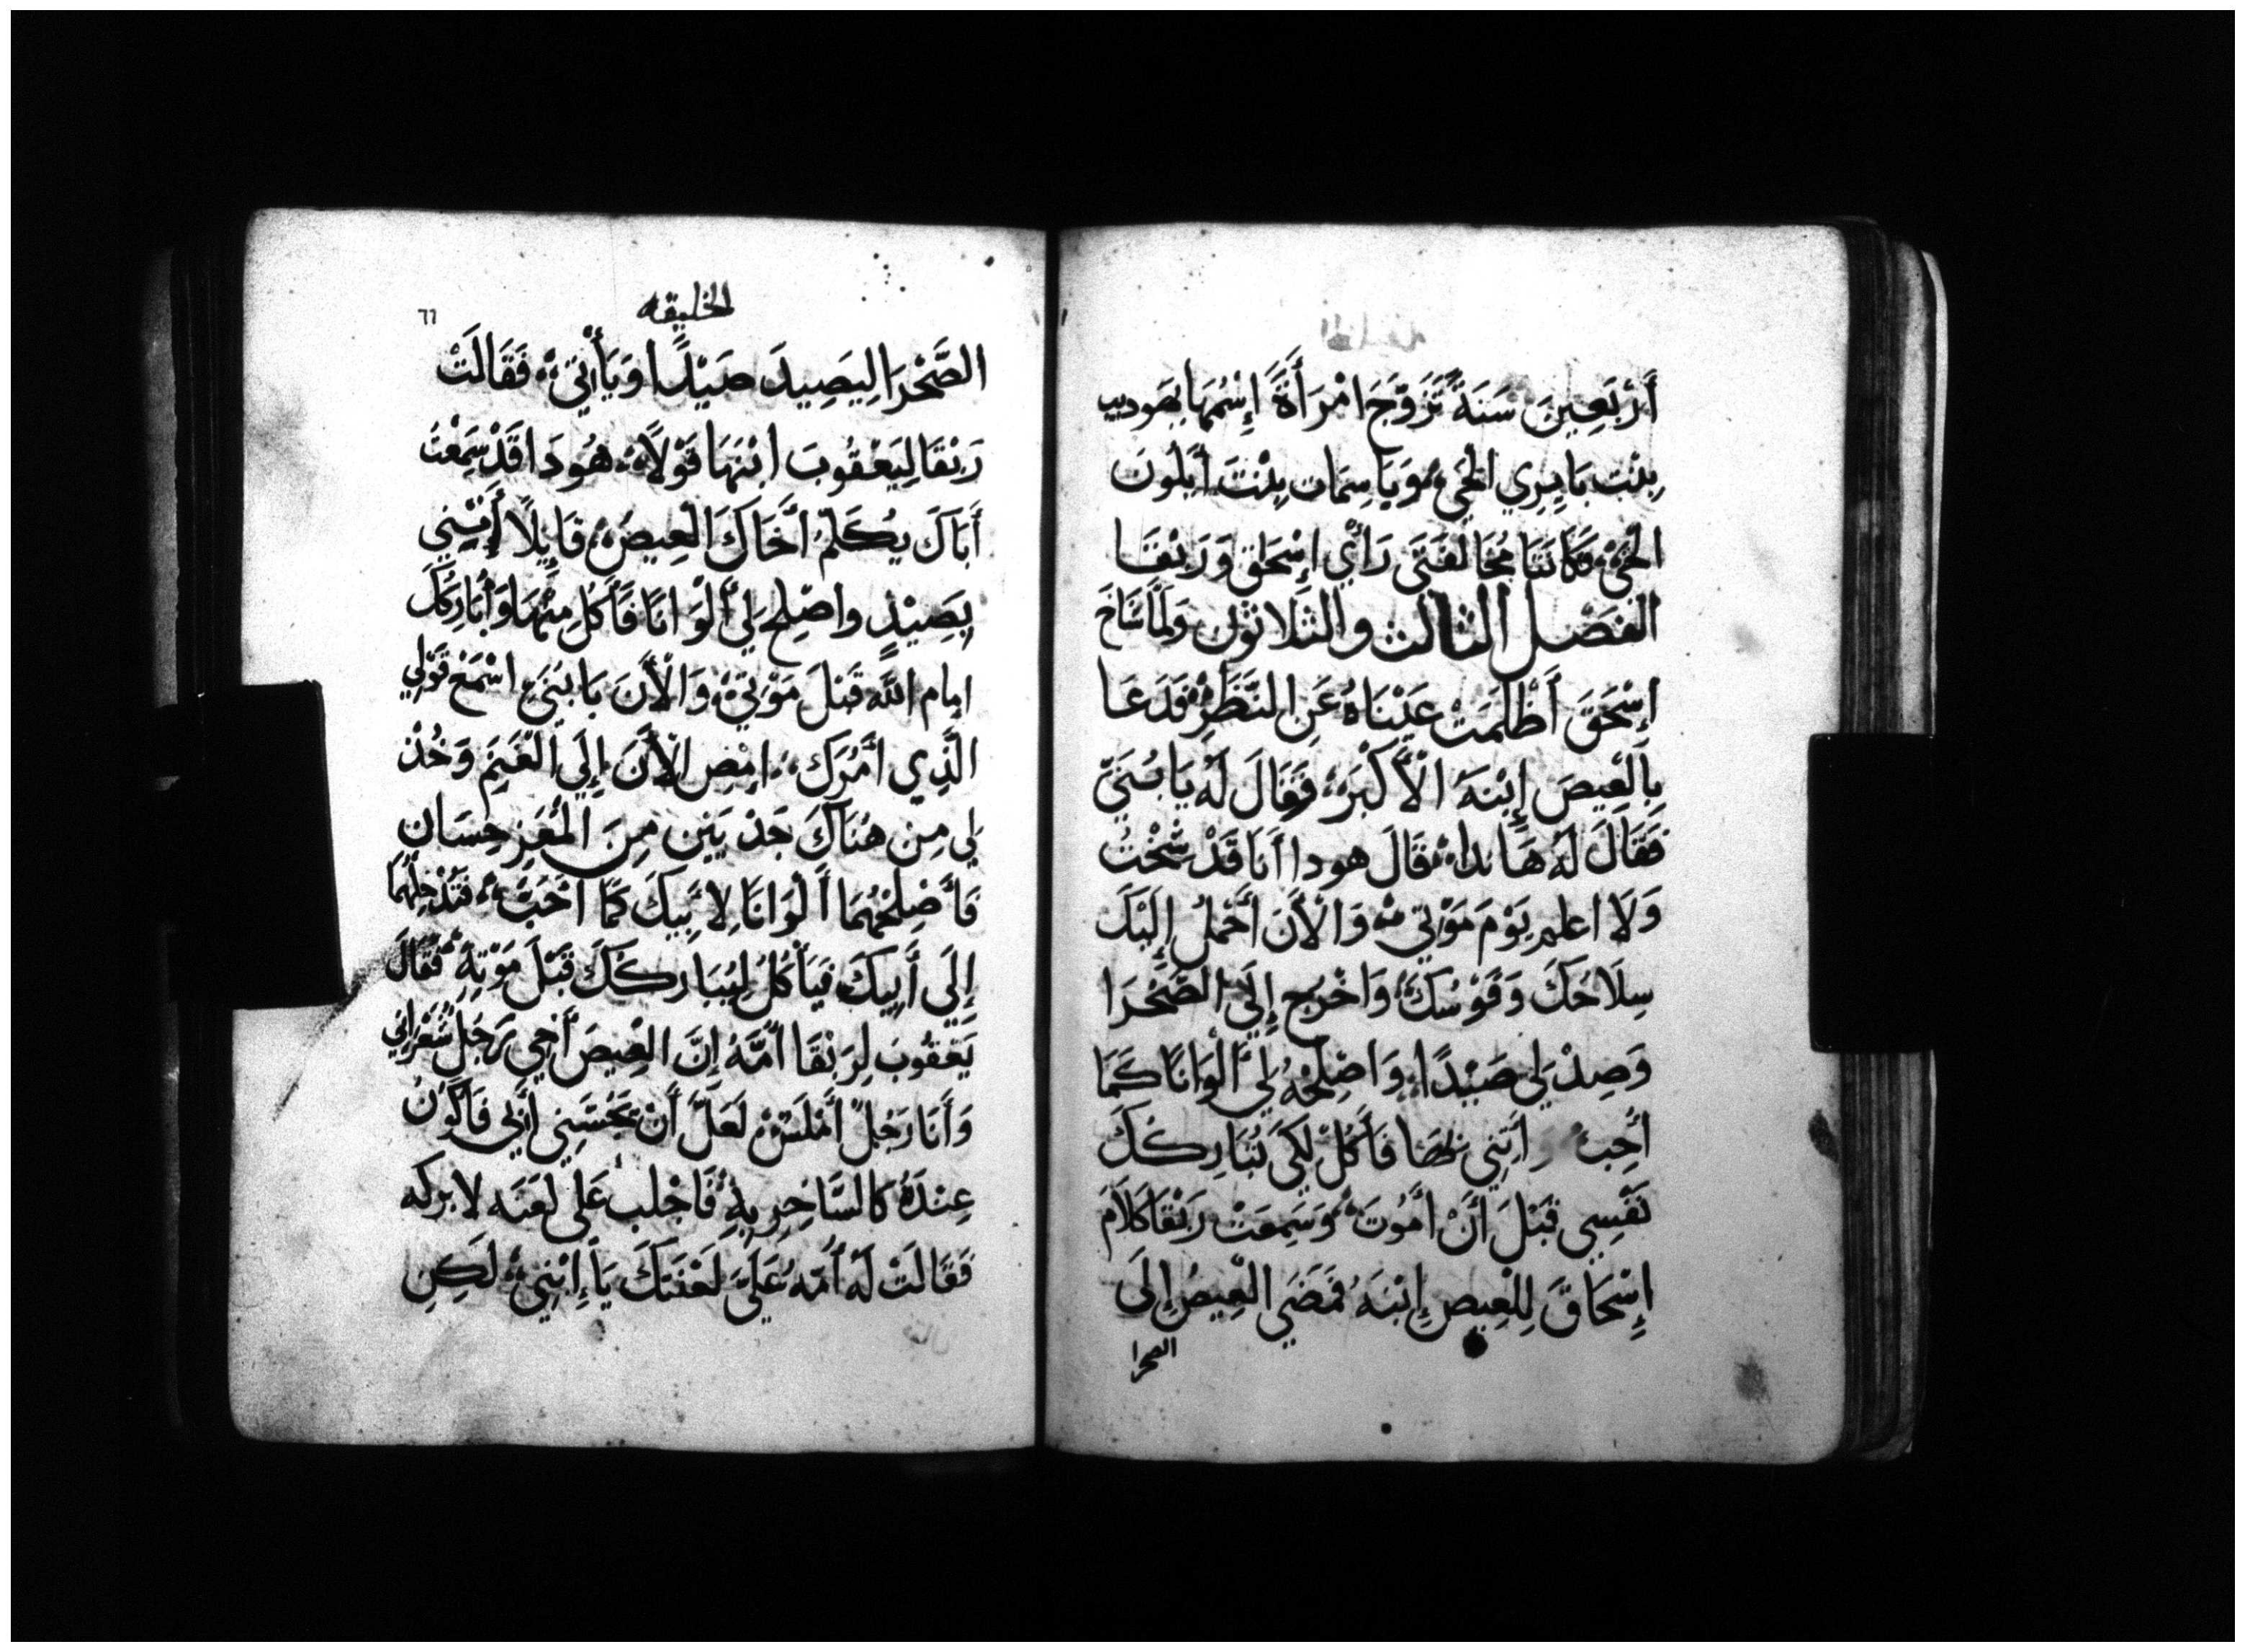 أَرْبَعِينَ سَنَةً تَزَوَّجَ امْرَأَةً إِسْمُهَا يهوديت
بِنْت بَايِرِي الحَيّ وَيَاسِمَات بِنْتَ أَيلون
الحَيّ فَكَانَتَا مُخَالفَتَى رَأْي إِسْحَاق وَرَبْقَا
الفصل الثالث والثلاثون وَلَمَّا شَاخَ
إِسْحَقَ أَظْلَمَتْ عَيْنَاهُ عَنِ النَّظَرِ فَدَعَا
بِالْعِيصَ إِبْنَهُ الْأَكْبَرَ فَقَالَ لَهُ يَا بُنَيَّ
فَقَالَ لَهُ هَا نذا قَالَ هودا أَنَا قَدْ شِخْتُ
وَلَا اعلم يَوْمَ مَوْتِي وَالْأَنَ أَحْمِلُ إِلَيْكَ
سِلَاحَكَ وَقَوْسَكَ وَاخْرُج إِلَى الصَّحْرَا
وَصِدْ لِي صَيْدًا وَاصْلِحْهُ لِي أَلْوَانًا كَمَا
أُحِبّ وأتِنِي بهَا فَأَكُلُ لِكَيْ تُبَارِكُكَ
نَفْسِي قَبْلَ أَنْ أَمُوتَ وَسَمِعَتْ رَبْقَا كَلَامَ
إِسْحَاقَ لِلْعِيصِ إِبْنَهُ فَمَضَى الْعِيصُ إِلَى
الصحرا
الخليقه
٦٦
الصَّحْرَا لِيَصِيدَ صَيْدًا وَيَأْتِي فَقَالَتْ
رَبْقَا لِيَعْقُوبَ ابْنَهَا قَوْلًا هُودَا قَدْ سَمِعْتُ
أَبَاكَ يُكَلِّمُ أَخَاكَ الْعِيصُ قَايِلًا أَتْنِي
بِصَيْدٍ واصْلِح لِي أَلْوَانًا فَأَكُلُ مِنْهَا وَأُبَارِكُكَ
امام الله قَبْلَ مَوْتِي وَالْأَنَ يَا بُنَيَّ اسْمَعْ قَوْلِي
الَّذِي أَمُرُكَ امْضِ الْأَنَ إِلَى الْغَنَم وَخُذْ
لِي مِنْ هُنَاكَ جَدْيَيْنِ مِنَ الْمَعِزِ حِسَانٍ
فَأَصْلِحْهُمَا أَلْوَانًا لِأَبِيكَ كَمَا أَحَبُّ فَتُدْخِلْهُمَا
إِلَى أَبِيكَ فَيَأْكُلُ لِيُبَارِكُكَ قَبْلَ مَوْتِهِ فَقَالَ
يَعْقُوبَ لِرَبْقَا أُمَّهُ إِنَّ الْعِيصَ أَخِي رَجُلٌ شَعْرَانِي
وَأَنَا رَجُلٌ أَمْلَسٌ لَعَلَّ أَنْ يَحُسَّنِي أَبِي فَأَكُونُ
عِنْدَهُ كَالسَّاخِرِ بِهِ فَأَجْلب عَلَي لعنه لا بركه
فَقَالَتْ لَهُ أُمّهُ عَلَيَّ لَعْنَتَكَ يَا إِبْنِي لَكِنِ